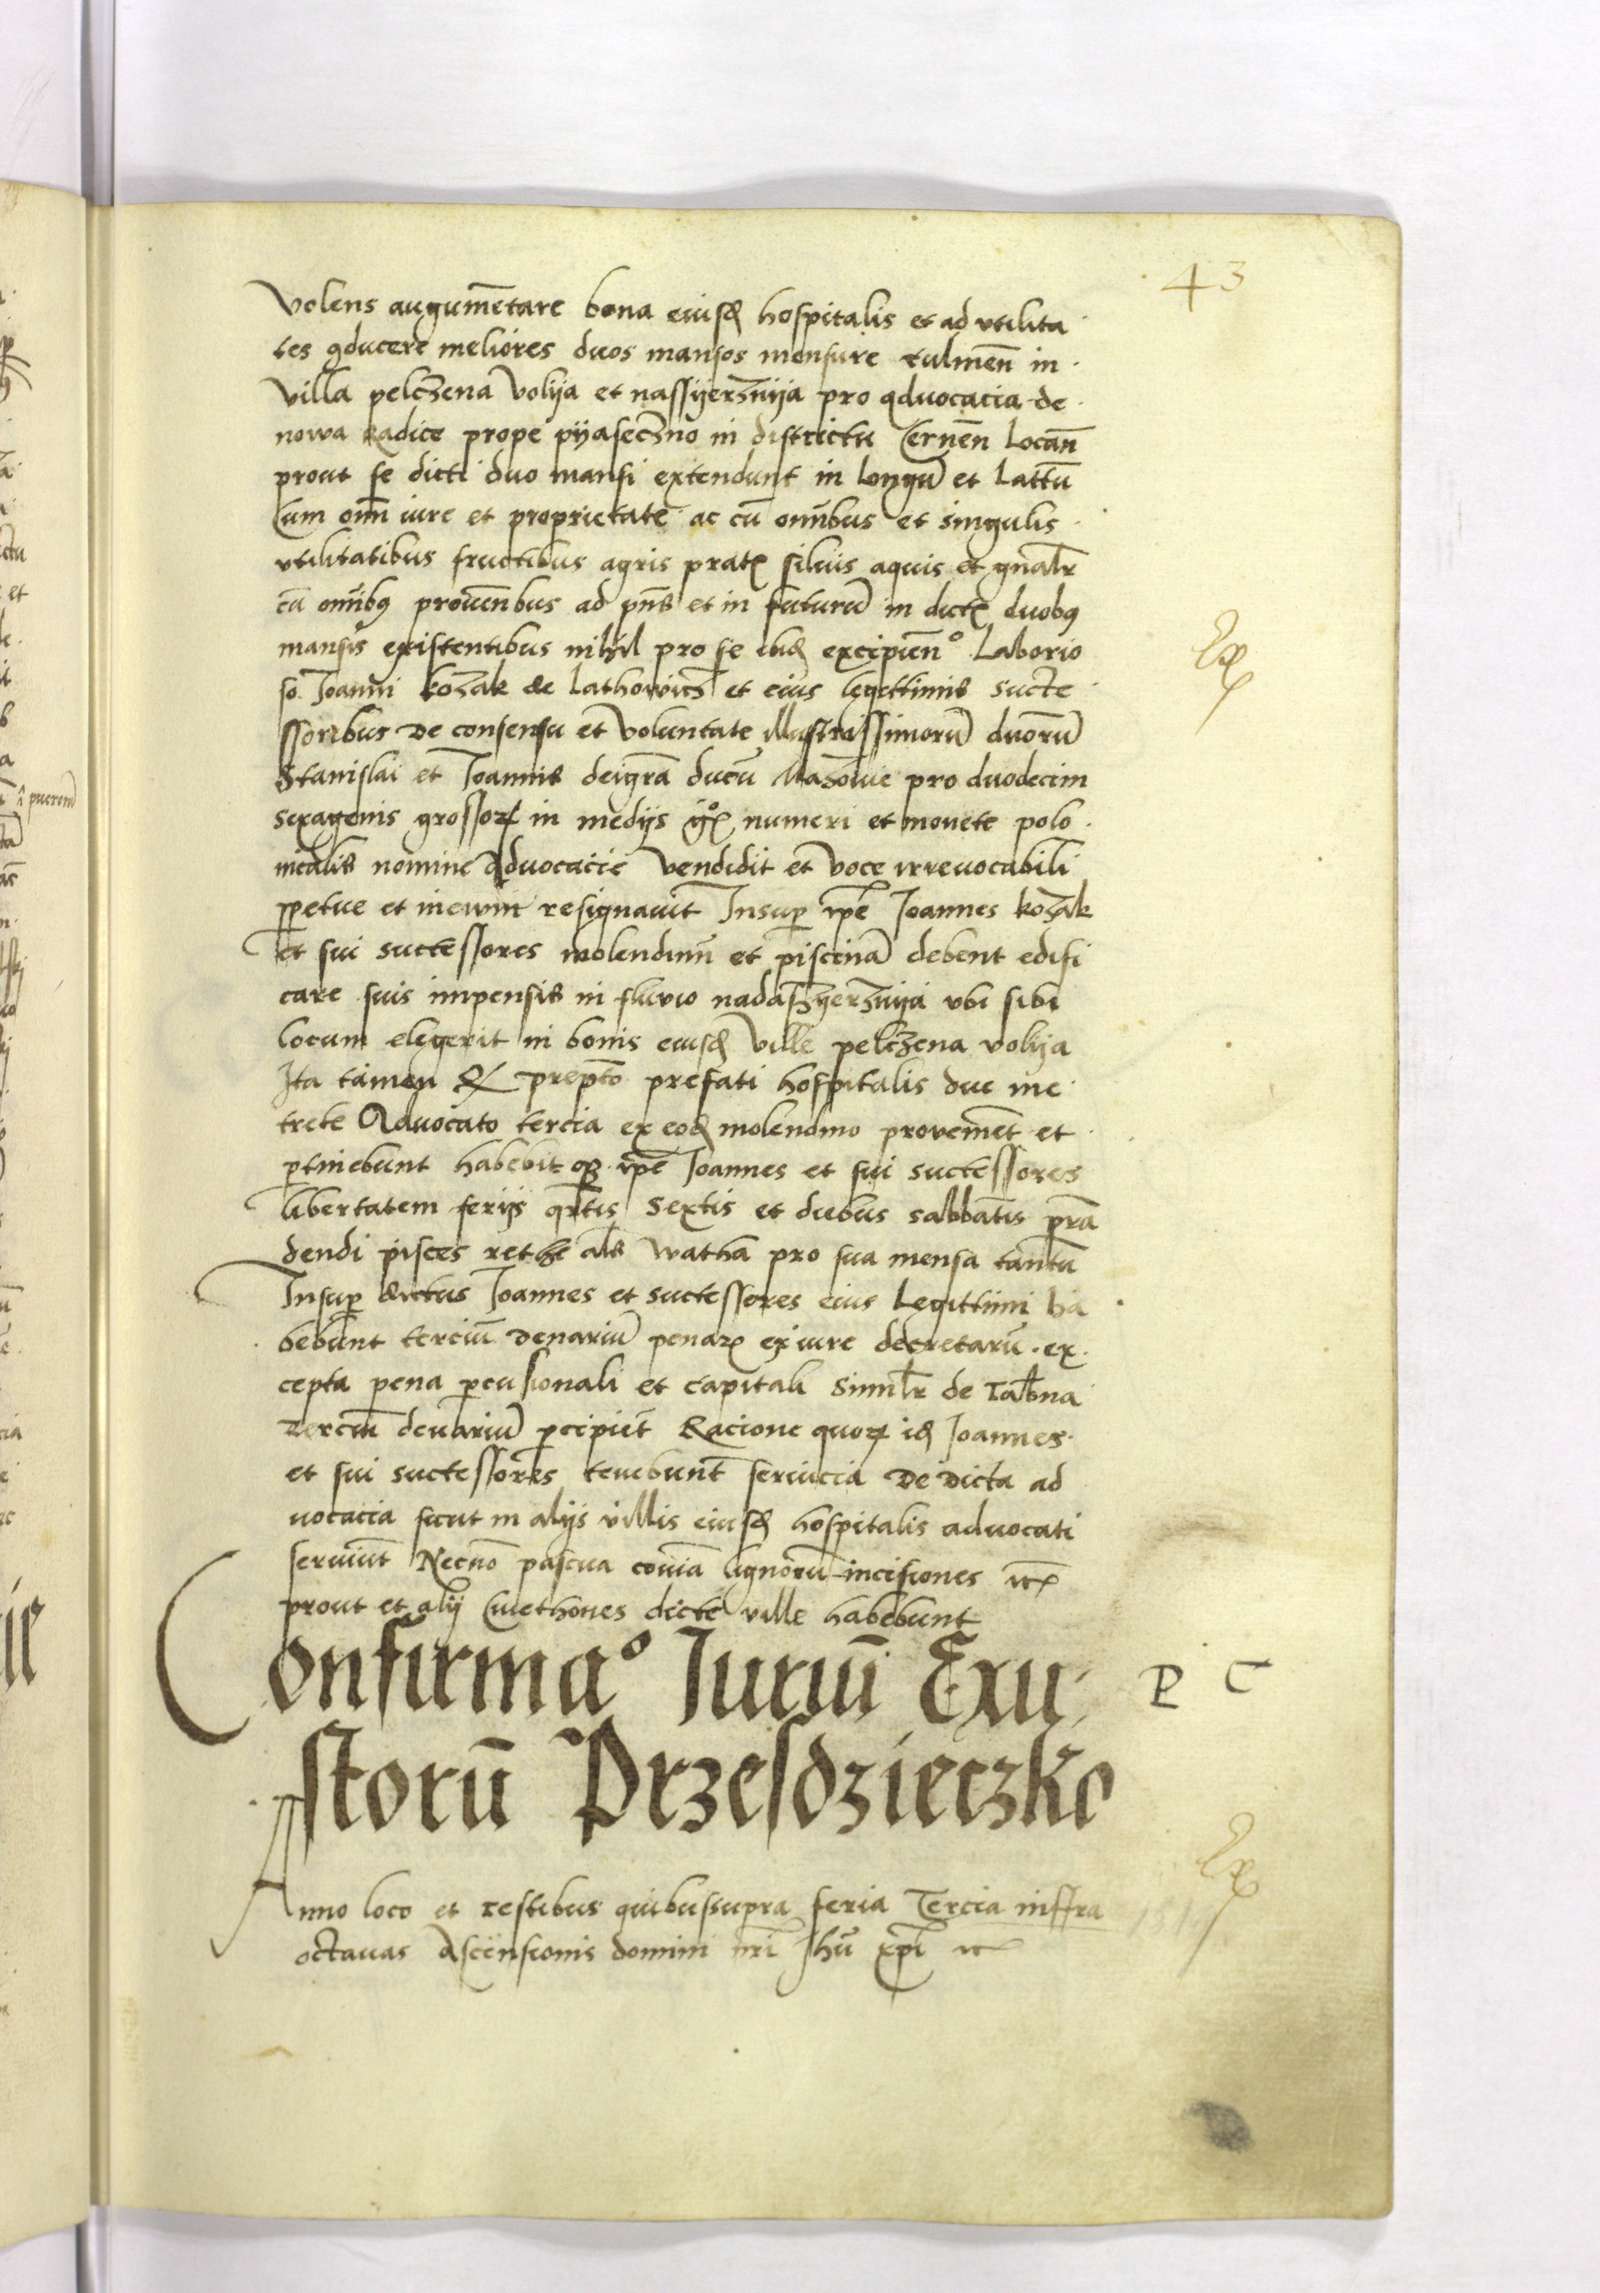 43
Volens augumẽtare bona eiusd hospitalis et ad vtilita
tes ꝯducere meliores duos mansos mensure culmeñ in
villa pelczena Volija et nassijerznija pro aduocacia de
nowa Radice prope pijaseczno in districtu Cerneñ Locañ
prout se dicti duo mansi extendunt in longũ et Lattũ
Cum omni iure et proprietate ac cũ omnibus et singulis
vtilitatibus fructibus agris pratꝭ siluis aquis et gñalr
cũ omnibꝯ prouenibus ad pñs et in futurũ in dictꝭ duobꝯ
mansis existentibus nihil pro se ibid excipienº Laborio
so Joanni kozak de Lathowicz et eius legittimis succe
ssoribus De consensu et Voluntate illustrissimorũ duorũ
Stanislai et Joannis dei grã ducũ Mazowie pro duodecim
sexagenis grossoꝝ in medijs numeri et monete polo
nicalis nomine Aduocacie Vendidit et Voce irreuocabili
ꝑpetue et in ewm̃ resignauit Insuꝑ ip̃e Joannes kozak
et sui successores molendinũ et piscinã debent edifi
care suis impensis in fluuio nadaszyerznija vbi sibi
locum elegerit in bonis eiusd Ville pelczena volija
Ita tamen prep̃to prefati hospitalis due me
trete Aduocato tercia ex eod molendino prouenient et
ꝑtinebunt habebit ip̃e Joannes et sui successores
libertatem ferijs qrtis Sextis et diebus sabbatis
dendi pisces rethe als watha pro sua mensa tantũ
Insuꝑ dictus Joannes et successores eius Legittimi ha
bebunt terciũ Denariũ penaꝝ ex iure decretarũ ex
cepta pena ꝑcusionali et capitali Similr de Tabna
Terciũ denariũ ꝑcipiet Racione quoꝝ id Joannes
et sui successores tenebunt seruicia De Dicta ad
uocacia sicut in alijs villis eiusd hospitalis aduocati
seruiunt Necnõ pascua lignorũ incisiones
prout et alij Cmethones dicte ville habebunt
Confirmaº Jurium Exu
storũ Przesdzieczko
P C
Anno loco et testibus quibus supra feria Tercia inffra
octauas Ascensionis domini nr̃i Jhũ xp̃i